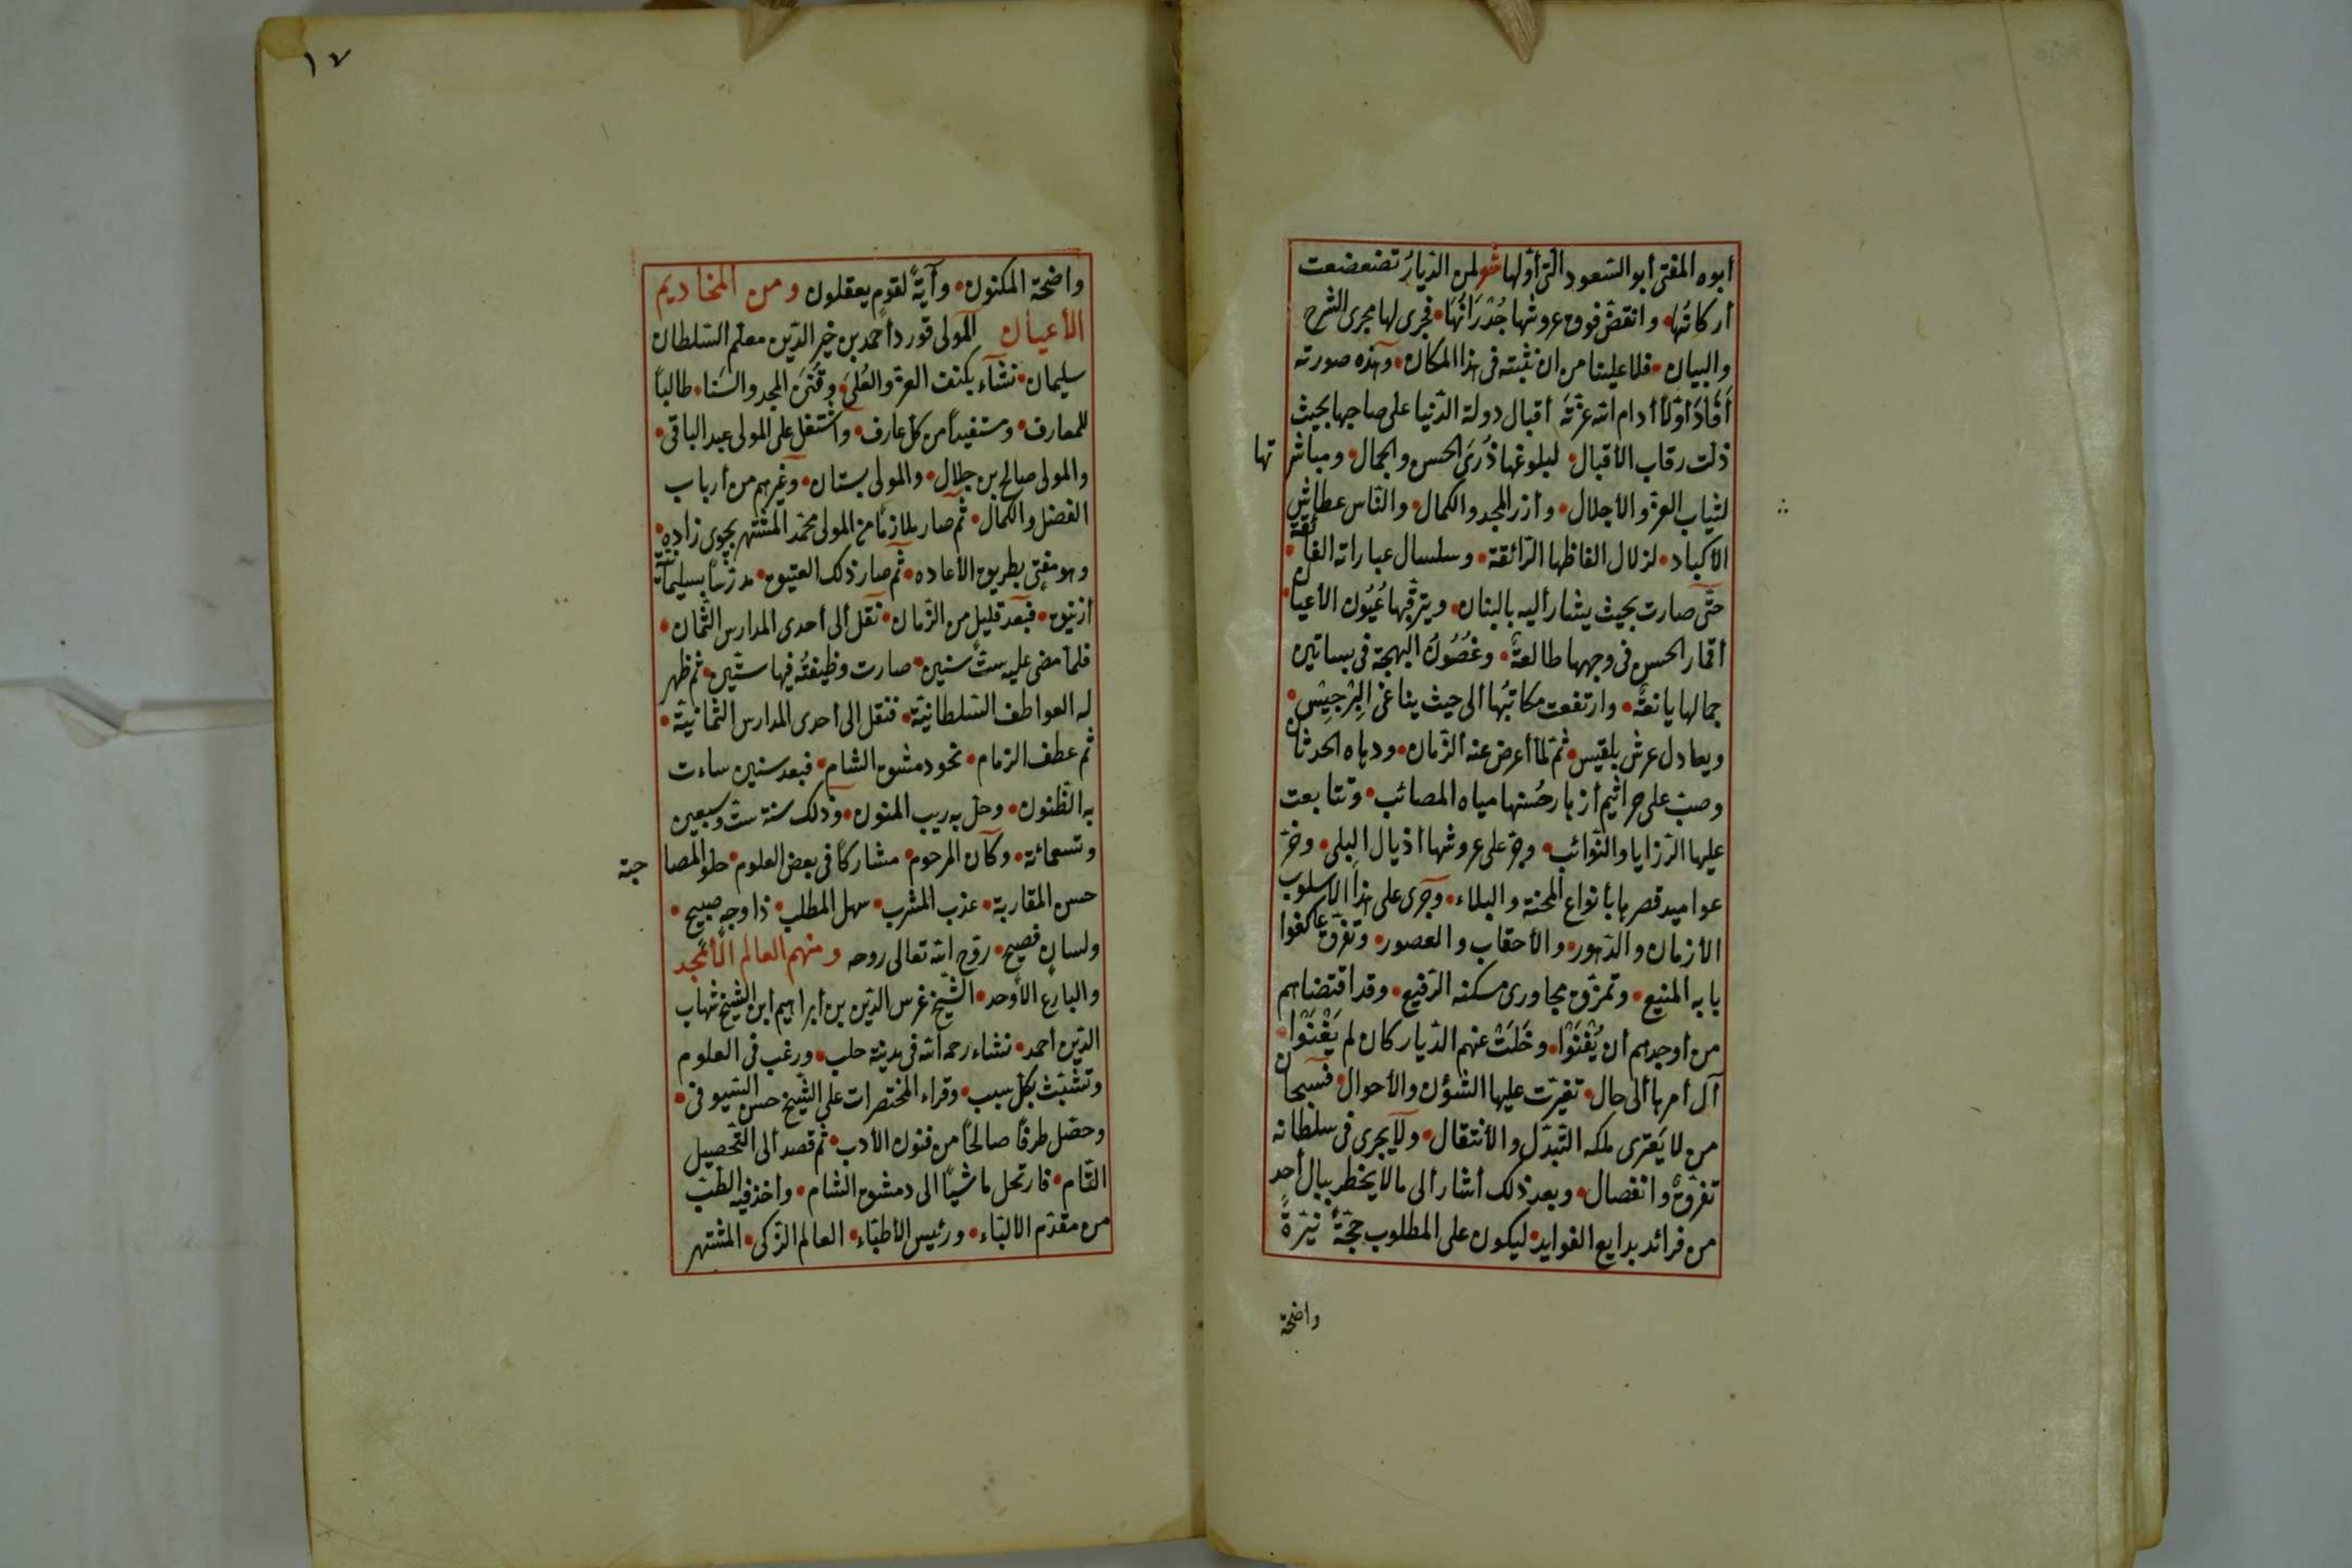 أبوه المفتى أبو السّعود التى أوّلها شعر لمن الدّيارُ تضعضعت
أركانُها • وانقضّ فوق عروشها جُدْرَانُهَا • فجرى لها مجرى الشرح
والبيان • فلا علينا من ان نثبته فى هذا المكان • وهذه صورته
أَفَادَ أوّلاً أدام الله عزّتَه أقبال دولة الدّنيا على صاحبها بحيث
ذلّت رقاب الأقبال • لبلوغها ذُرَىَ الحسن والجمال • ومباشر تها
لثياب العزّة والأجلال • وأزر المجد والكمال • والنّاس عطاش
الأكباد • لزلال الفاظها الرّائقة • وسلسال عباراته الفائقة •
حتّى صارت بحيث يشار أليه بالبنان • ويترقّبها عُيُون الأعيان •
أقمار الحسن فى وجهها طالعةٌ • وغصُونُ البهجة فى بساتين
جمالها يانعةٌ • وارتفعت مكانتُها ألى حيث يناغى البِرْجِيْس •
ويعادل عرش بلقيس • ثمّ لمّا أعرض عنه الزّمان • ودهاه الحدثان
وصبّ على جراثيم أزهار حُسنها مياه المصائب • وتتابعت
عليها الرّزايا والنّوائب • وجرّ على عروشها أذيال البِلى • وخرّ
عواميد قصرها بأنواع المحنة والبلاء • وجرى على هذا الأسلوب
الأزمان والدّهور • والأحقاب والعصور • وتفرّق عاكفوا
بابه المنيع • وتمزّق مجاورى مسكنه الرّفيع • وقد اقتضاهم
من أوجدهم أن يُفْنَوْا • وخَلَتْ عنهم الدّيار كان لم يَغْنَوْا •
آل أمرها ألى حال • تغيّرت عليها الشؤن والأحوال • فسبحان
من لا يَعترى ملكه التّبدّل والأنتقال • ولا يجرى فى سلطانه
تفرّقٌ وانفصال • وبعد ذلك أشار ألى مالا يخطر ببال أحد
من فرائد بدايع الفوايد • ليكون على المطلوب حجّةً نيّرةً
واضحة
١٧
واضحة المكنون • وآيةً لقوم يعقلون ومن المخاديم
الأعيان المولى قورد أحمد بن خير الدّين معلّم السّلطان
سليمان • نشآء بكنف العزّة والعُلَىَ • وقُنَىَ المجد والسَنا • طالباً
للمعارف • ومستفيداً من كلّ عارف • واشتغل على المولى عبد الباقى •
والمولى صالح بن جلال • والمولى بستان • وغيرهم من أرباب
الفضل والكمال • ثمّ صار ملازمًا من المولى محمّد المشتهر بچوى زاده •
وهو مفتٍى بطريق الأعاده • ثمّ صار ذلك العتيق • مدرّساً بسليمانيّة
أزنيق • فبعد قليلٍ من الزّمان • نقل ألى أحدى المدارس الثّمان •
فلمّا مضى عليه ستّ سنين • صارت وظيفتُه فيها ستّين • ثم ظهر
له العواطف السّلطانيّة • فنقل الى أحدى المدارس الثّمانيّة •
ثم عطف الزمام • نحو دمشق الشام • فبعد سنين ساءت
به الظّنون • وحلّ به ريب المنون • وذلك سنة ستّ وسبعين
وتسعمائة • وكان المرحوم • مشاركاً فى بعض العلوم • حلو المصا حبة
حسن المقاربة • عذب المشرب • سهل المطلب • ذا وجهٍ صبيح •
ولسانٍ فصيح • روّح الله تعالى روحه ومنهم العالم الأمجد
والبارع الأوحد • الشّيخ غرس الدّين بن أبراهيم ابن الشّيخ شهاب
الدّين أحمد • نشاء رحمه الله فى مدينة حلب • ورغب فى العلوم
وتشبّث بكلّ سبب • وقراء المختصرات على الشّيخ حسن السّيوفى •
وحصّل طرفاً صالحاً من فنون الأدب • ثم قصد ألى التّحصيل
التّام • فارتحل ماشيًا الى دمشق الشام • وأخذ فيه الطّبّ
من مقدّم الألبّاء • ورئيس الأطبّاء • العالم الزّكى • المشتهر